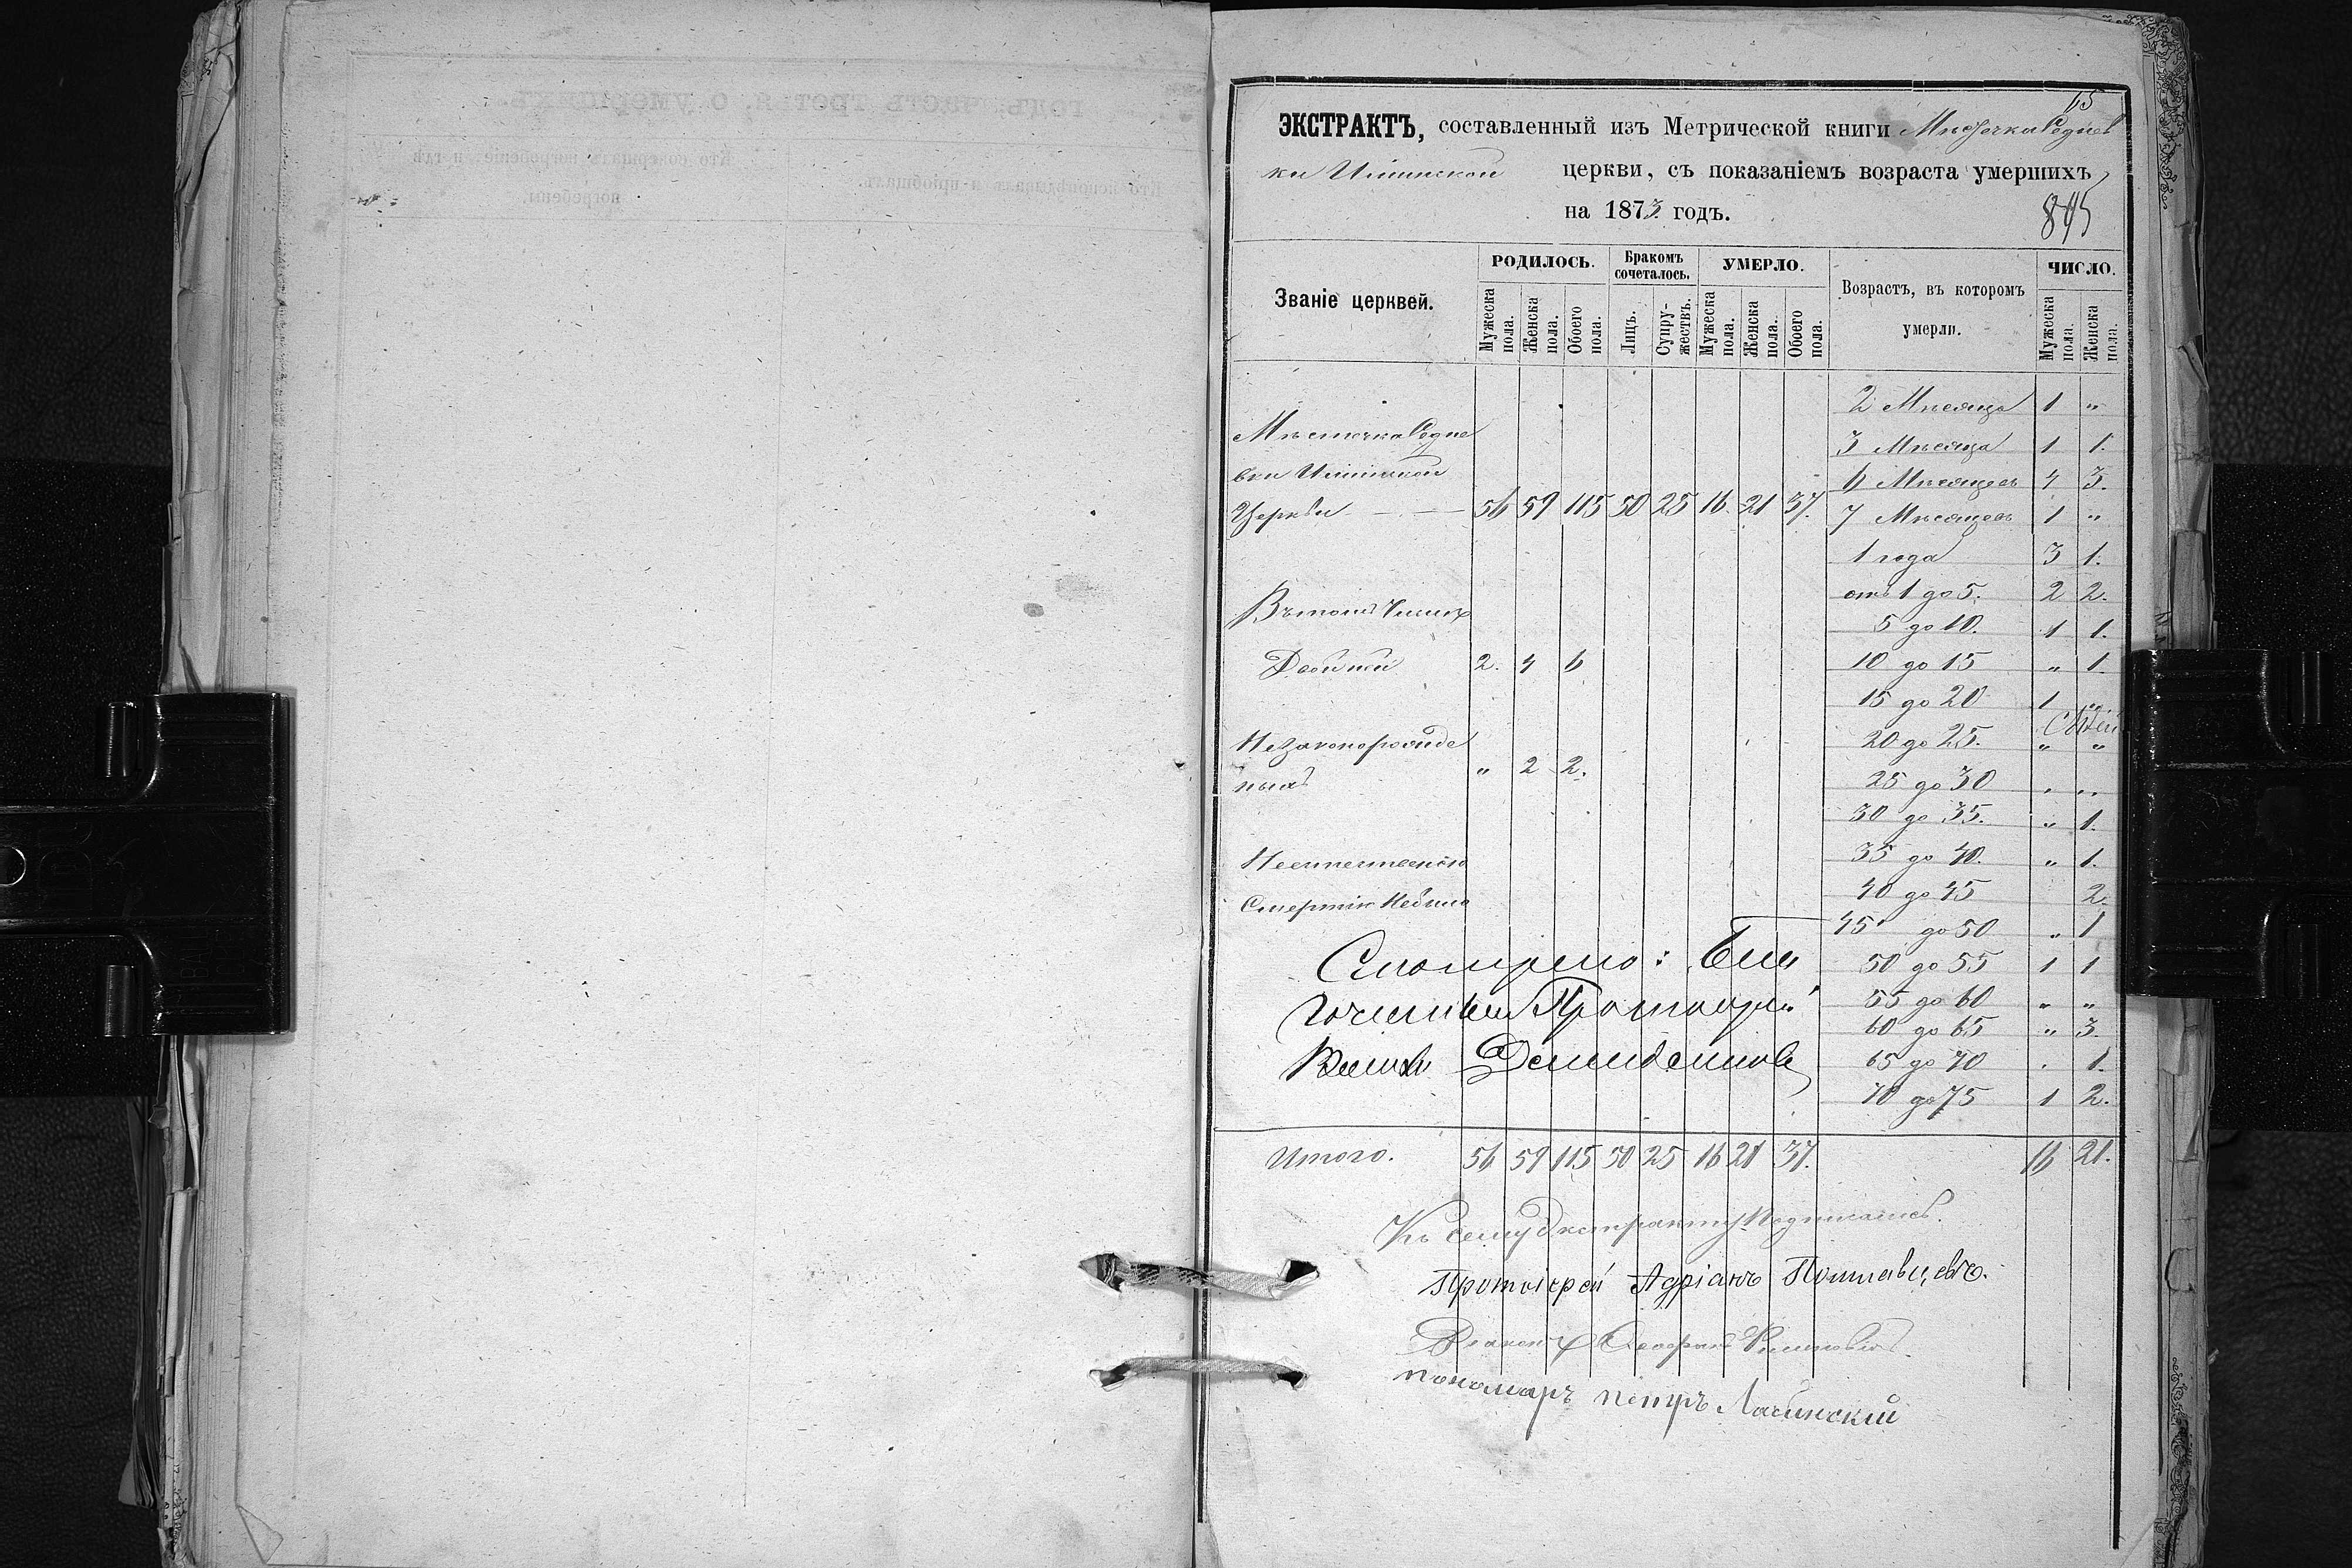 65
ЭКСТРАКТЪ, составленный изъ Метрической книги Мѣстечка Седнев
ки Ильинской церкви, съ показаніемъ возраста умершихъ
на 1873 годъ.
845
Званіе церквей.
РОДИЛОСЬ.
Мужеска пола.
Женска пола.
Обоего пола.
Бракомъ сочеталось.
Лицъ.
Супружествъ.
УМЕРЛО.
Мужеска пола.
Женска пола.
Обоего пола.
Возрастъ, въ которомъ умерли.
ЧИСЛО.
Мужеска пола.
Женска пола.
Мѣстечка Седне
вки Ильинской
Церкви 56 59 115 50 25 16 21 37.
Въ томъ числѣ
Двойней 2. 4 6
Незаконорожде
ныхъ " 2 2.
Неестественною
Смертію Небыло
2 Мѣсяца 1 "
3 Мѣсяца 1 1.
6 Мѣсяцевъ 4 3.
7 Мѣсяцевъ 1 "
1 года 3 1.
отъ 1 до 5. 2 2.
5 до 10. 1 1.
10 до 15 " 1.
15 до 20 1 "
20 до 25. " "
25 до 30 " "
30 до 35. " 1.
35 до 40. " 1.
40 до 45 2.
45 до 50 " 1
50 до 55 1 1
55 до 60 " "
60 до 65 " 3.
65 до 70 . 1.
70 до 75 1 2.
Смотрено: Бла
гочинный Протоіерей
Демидовскій
Итого. 56 59 115 50 25 16 21 37. 16 21.
Къ сему Экстракту Подписались.
Протоіерей Адріанъ Полтавцевъ.
Діаконъ
пономарь петръ Лачинский